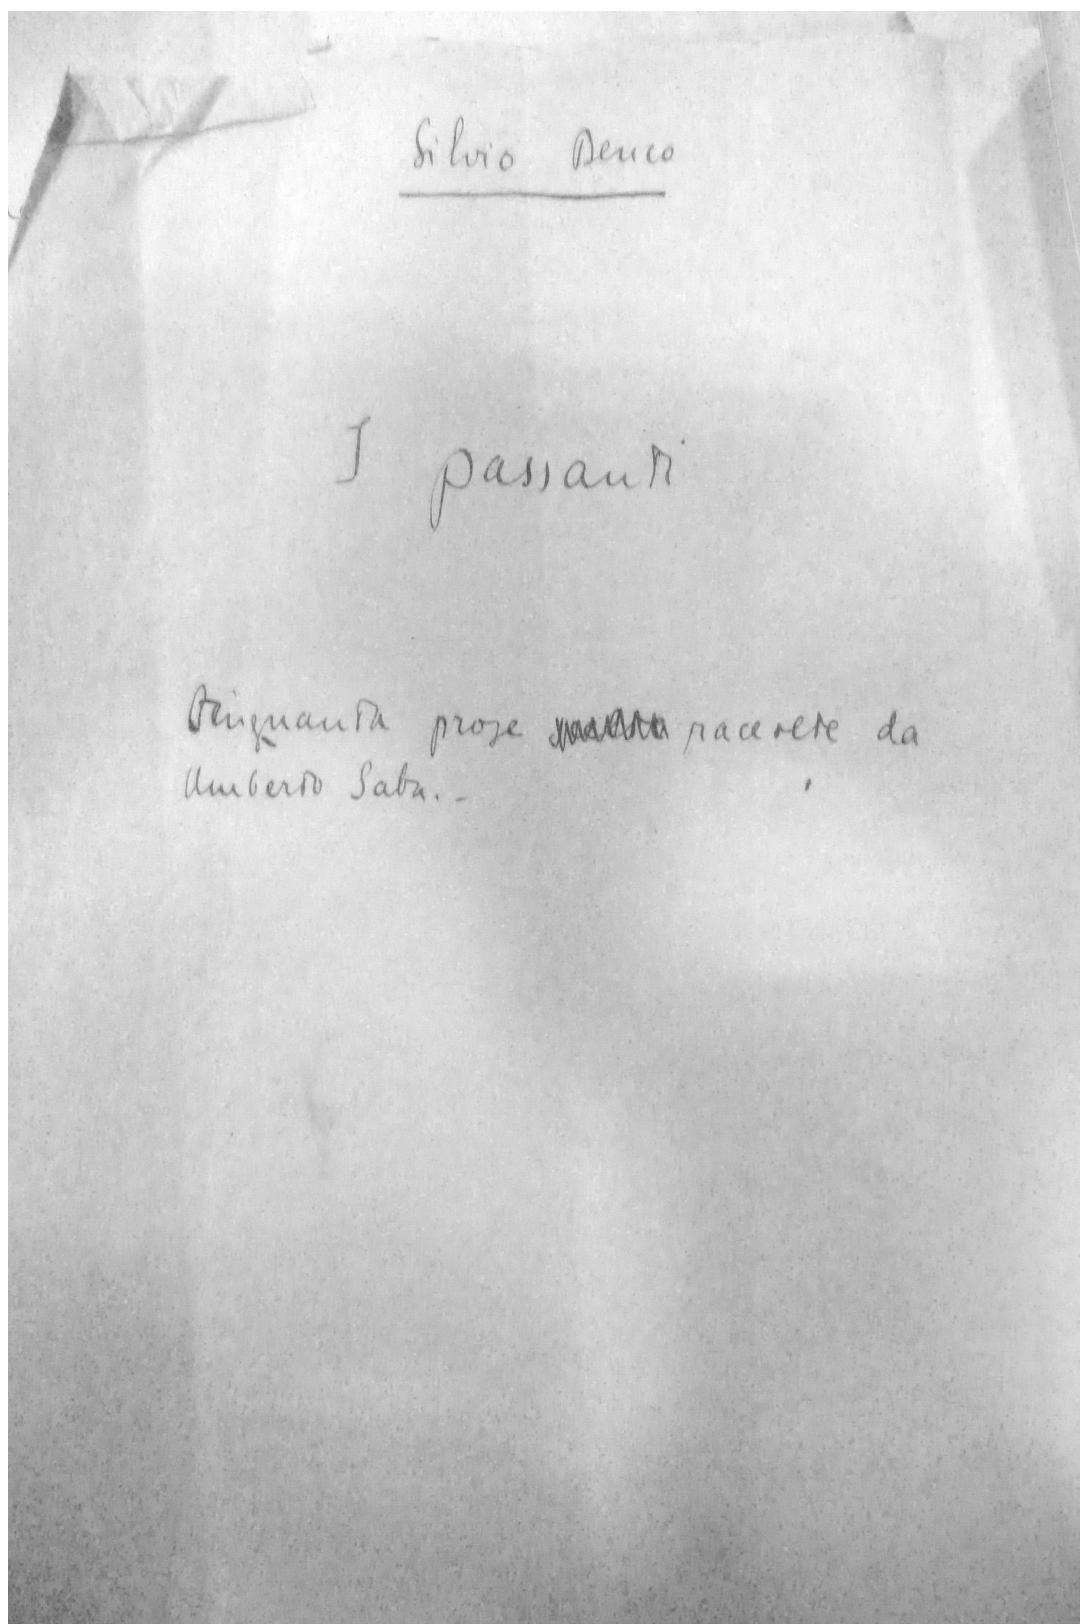 Silvio Benco
I passanti
Cinquanta prose raccolte da
Umberto Saba. -